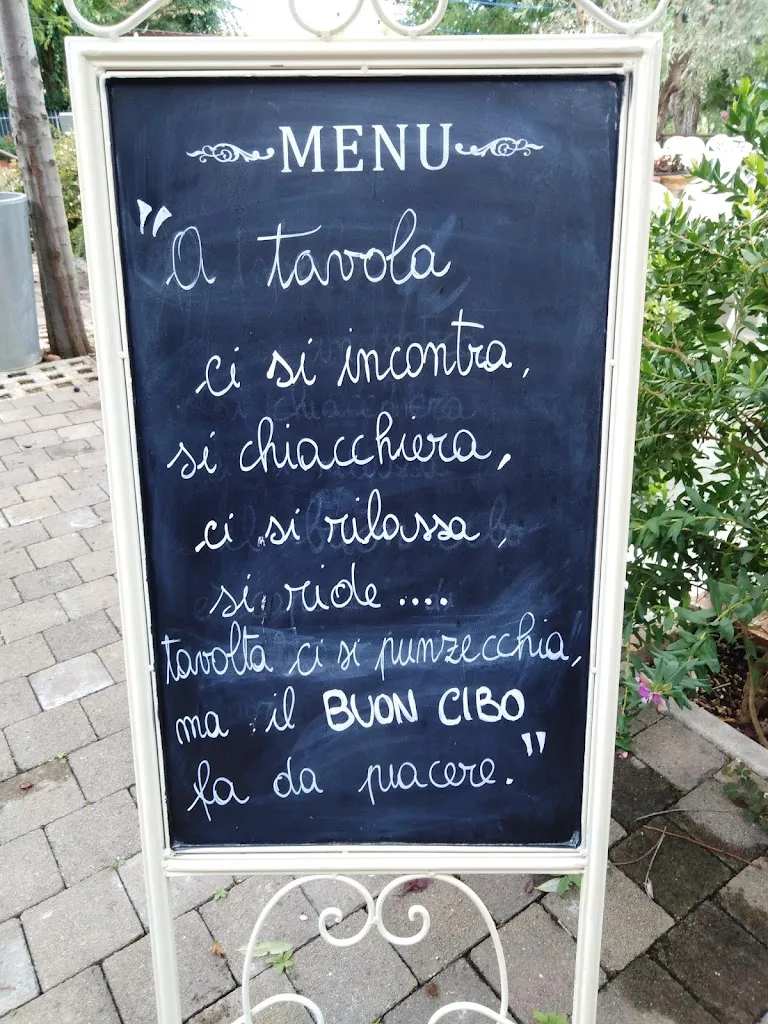 MENU
"A tavola
ci si incontra,
si chiacchiera,
ci si rilassa,
si ride ....
tavolta ci si punzecchia,
ma il BUON CIBO
fa da paciere."